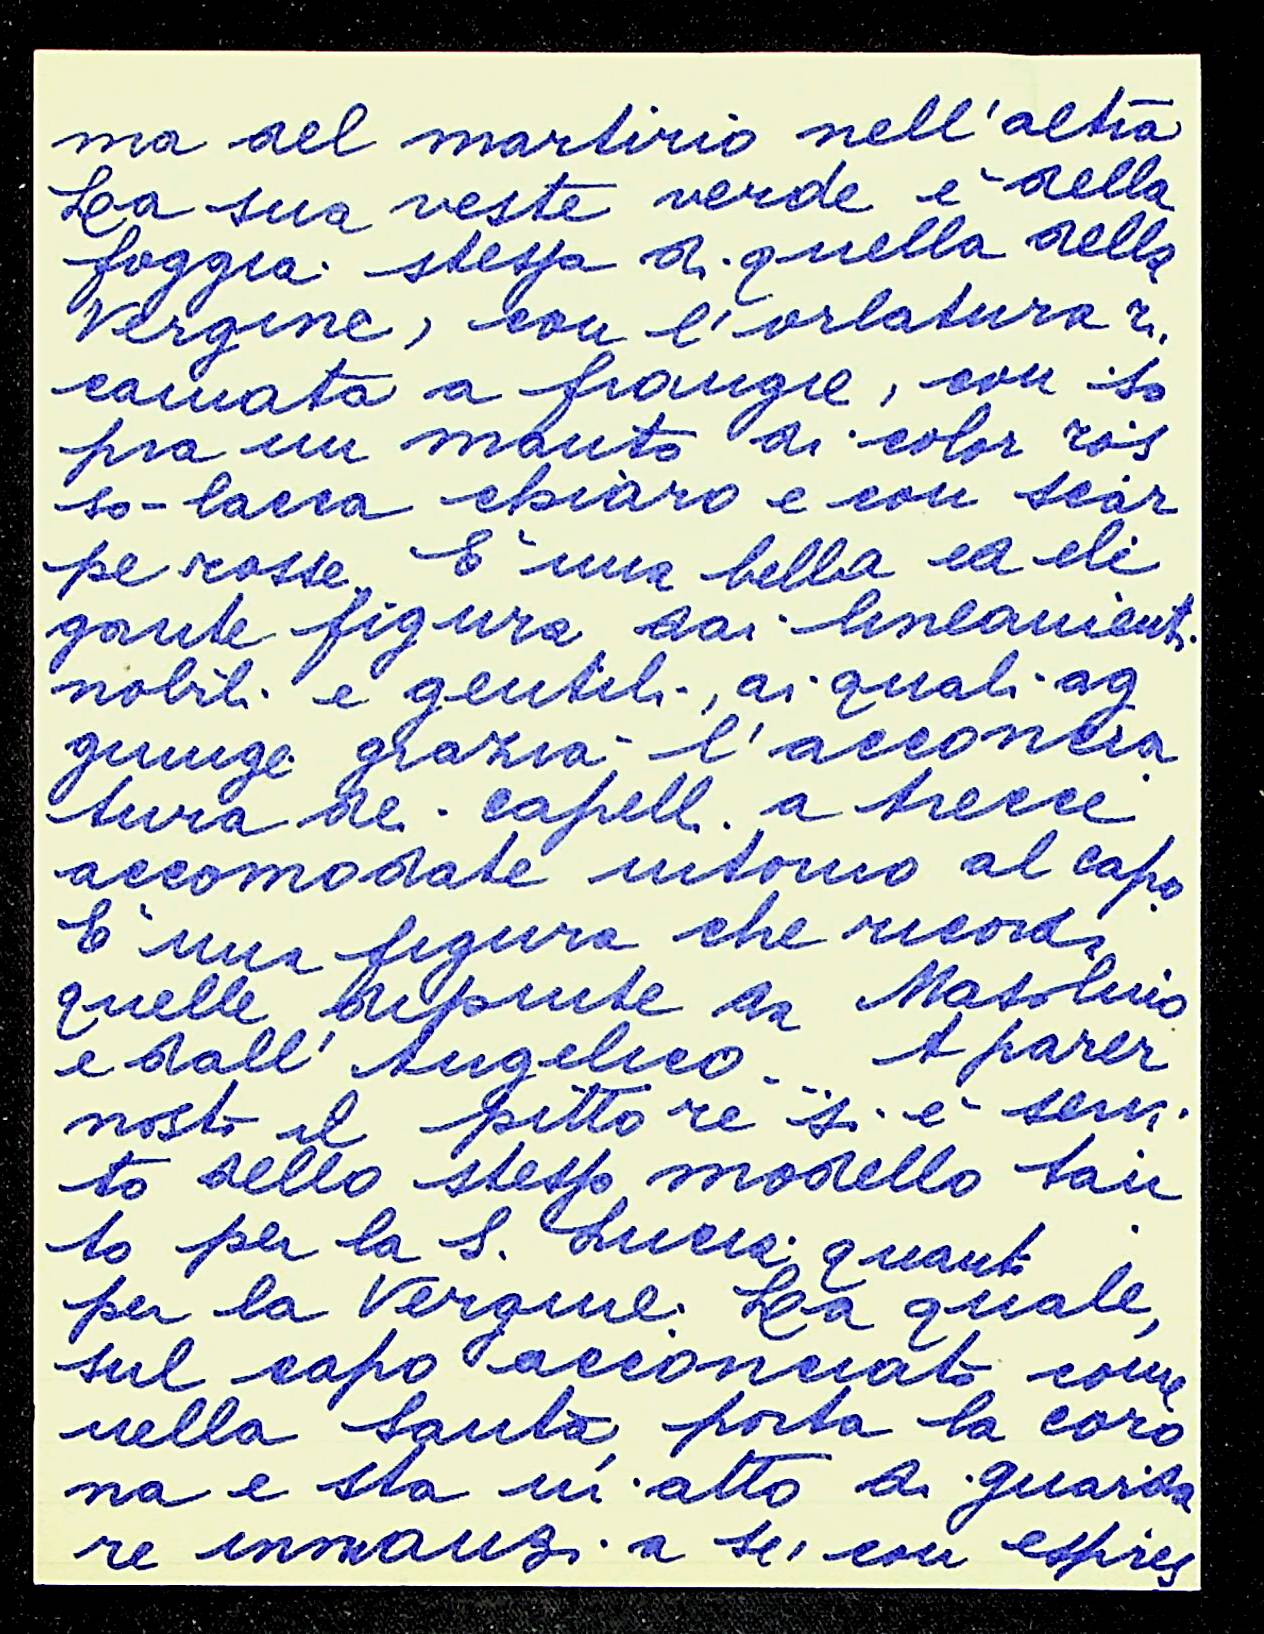 ma del martirio nell'altra
La sua veste verde è della
foggia stessa di quella della
Vergine, con l'orlatura ri
camata a frangie, con so
pra un manto di color ros
so-lacca chiaro e con scar
pe rosse. E' una bella ed ele
gante figura dai lineamenti
nobili e gentili, ai quali ag
giunge grazia l'acconcia
tura dei capelli a trecce
accomodate intorno al capo.
E' una figura che ricorda
quelle dipinte da Masolino
e dall'Angelico. A parer
nostro il pittore si è servi
to dello stesso modello tan
to per la S. Lucia quanto
per la Vergine. La quale,
sul capo acconciato come
nella Santa, porta la coro
na e sta in atto di guarda
re innanzi a sé, con espres